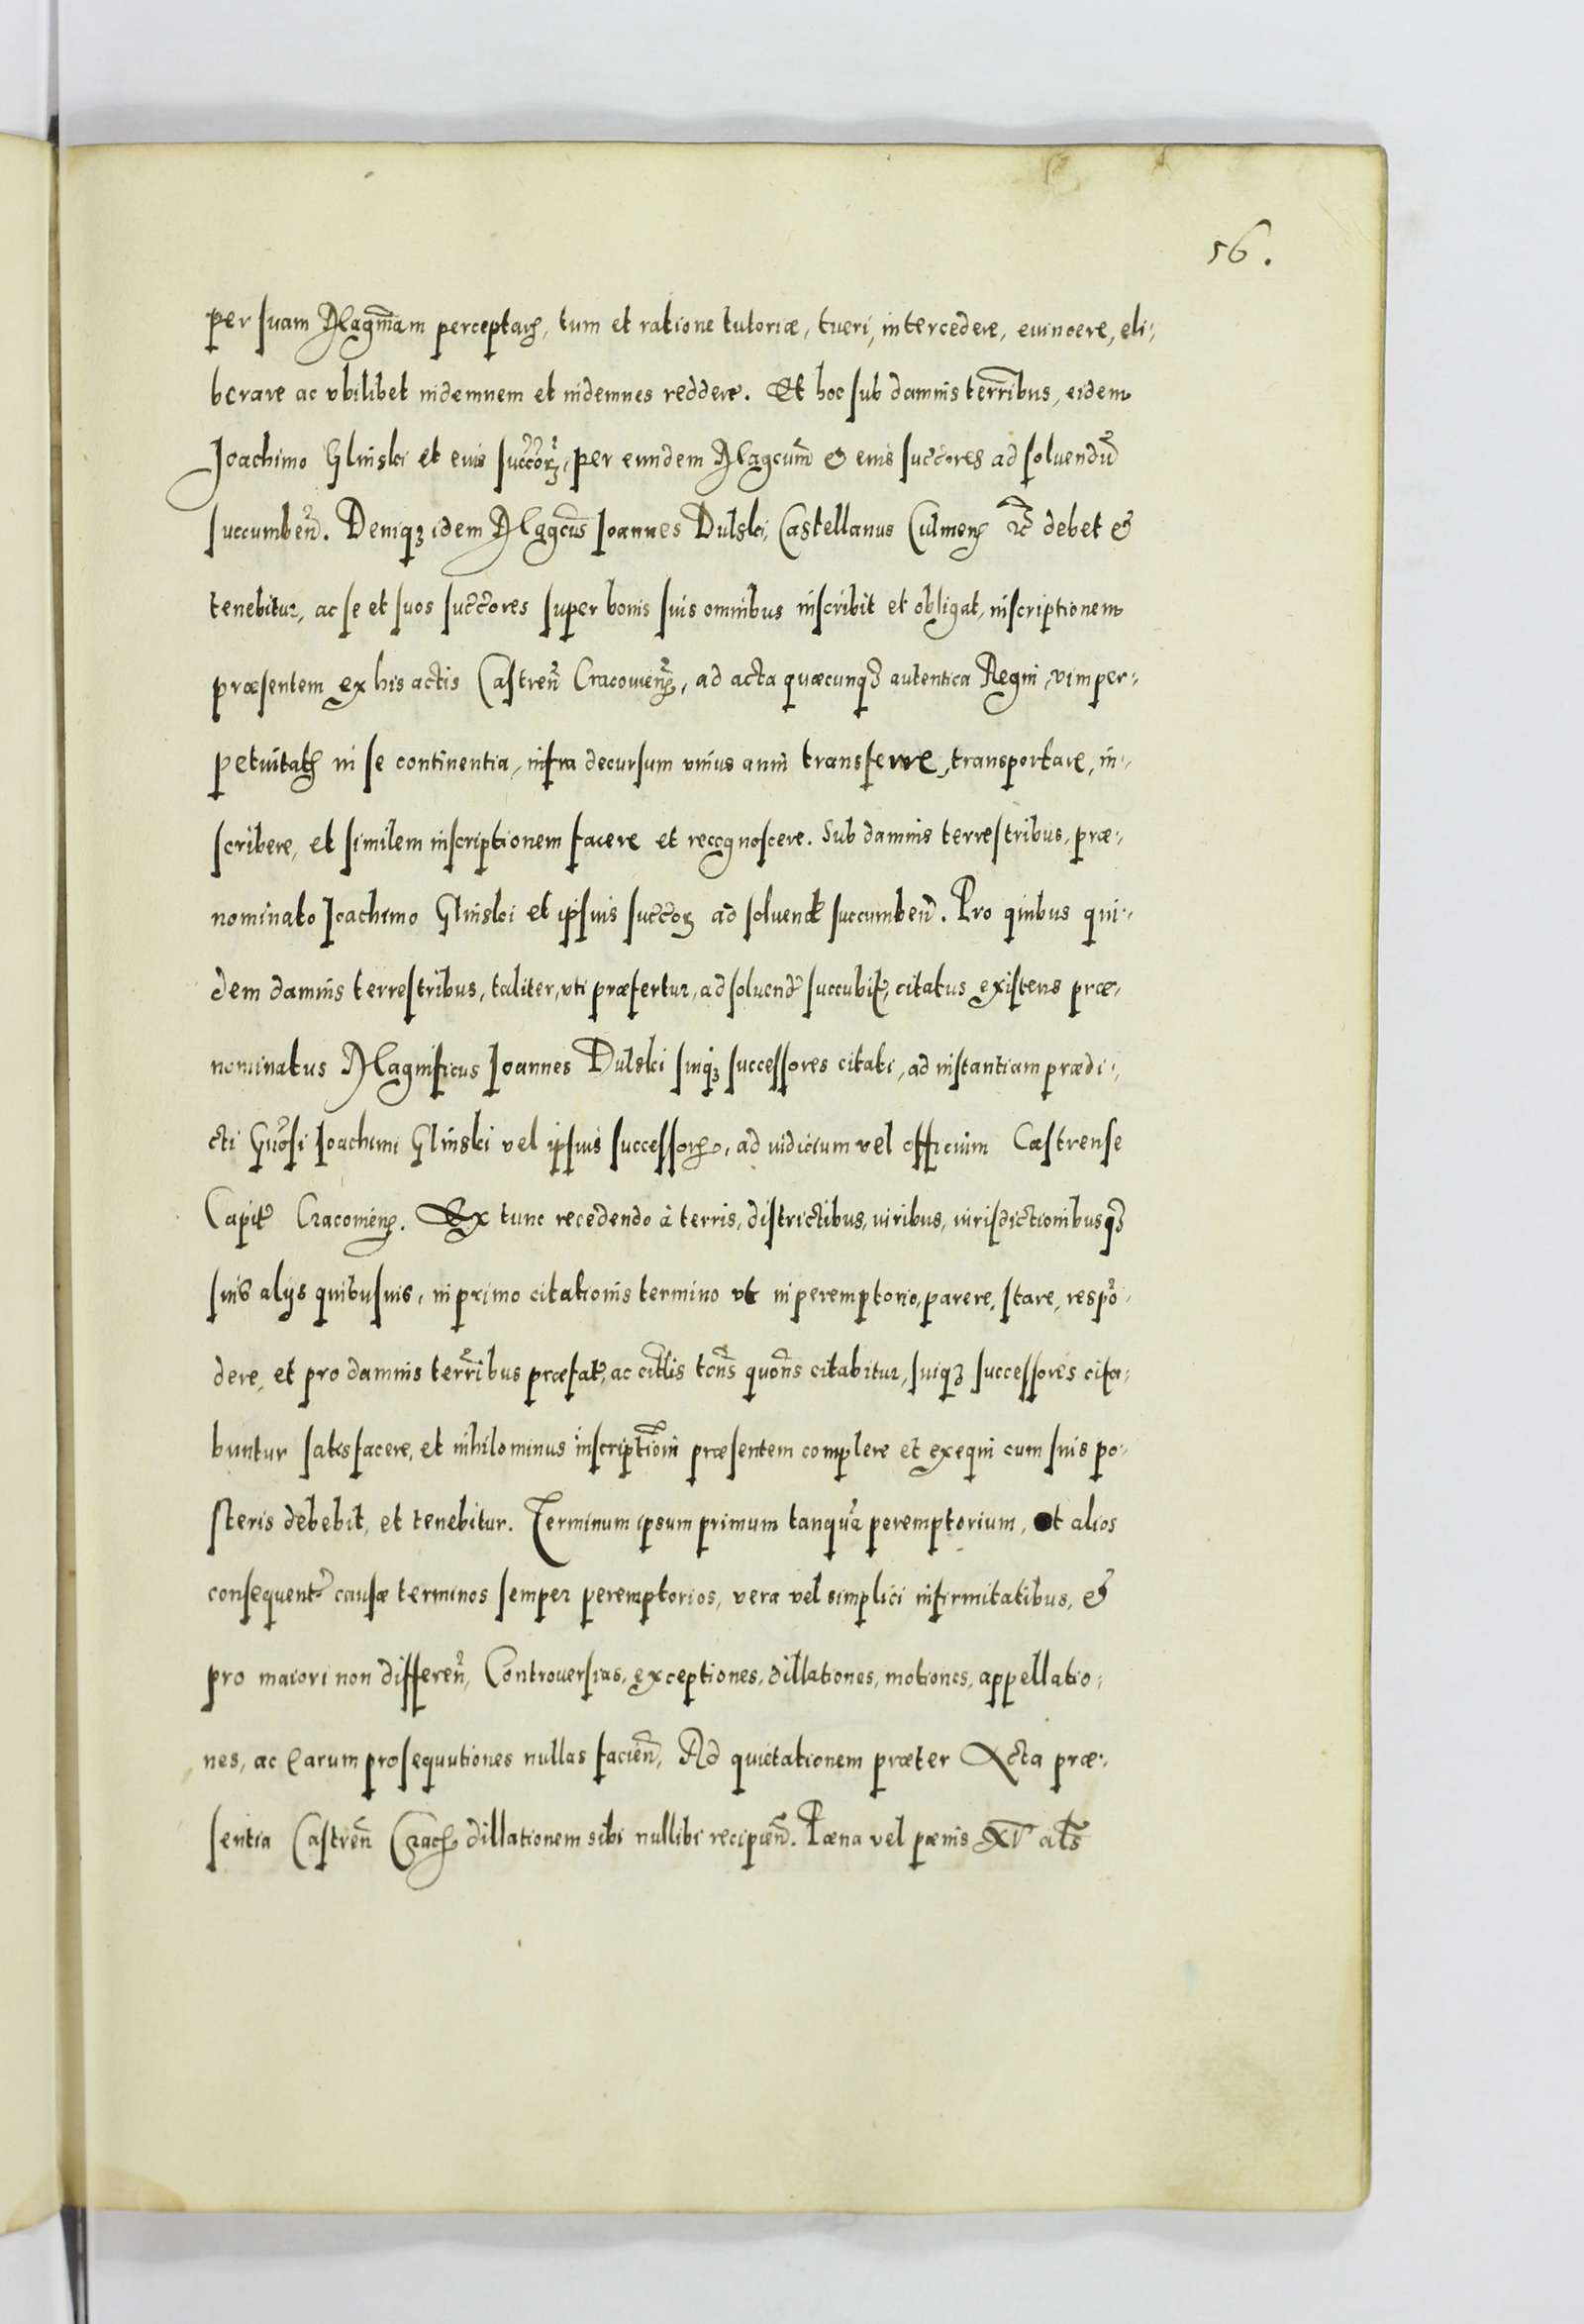 56.
per suam Magn̄am perceptarꝫ, tum et ratione tutoriæ, tueri, intercedere, euincere, eli-
berare ac vbilibet indemnem et indemnes reddere. Et hoc sub damnis terr̃ibus, eidem
Joachimo Glinski et eius succ̃orꝫ, per eundem Magcum̃ & eius succ̃ores ad soluendũ
succumbeñ. Deniqꝫ idem Magcus̃ Ioannes Dulski, Castellanus Culmenꝫ &c̃ debet &
tenebitur, ac se et suos succ̃ores super bonis suis omnibus inscribit et obligat, inscriptionem
præsentem ex his actis Castreñ Cracouienꝫ, ad acta quæcunqꝫ autentica Regni, vim per-
petuitatꝫ in se continentia, infra decursum vnius anni transferre, transportare, in-
scribere, et similem inscriptionem facere et recognoscere. Sub damnis terrestribus, præ-
nominato Joachimo Glinski et ipsius succ̃orꝫ ad soluend̃ succumbeñd. Pro quibus qui-
dem damnis terrestribus, taliter, vti præfertur, ad soluend̃ succubit̃, citatus existens præ-
nominatus Magnificus Ioannes Dulski suiqꝫ successores citati, ad instantiam prædi-
cti Gñosi Ioachimi Glinski vel ipsius successorꝫ, ad iudicium vel officium Castrense
Capit̃ Cracouienꝫ. Ex tunc recedendo à terris, districtibus, iuribus, iurisdictionibusqꝫ
suis alijs quibusuis, in primo citationis termino vt in peremptorio, parere, stare, respõ-
dere, et pro damnis terr̃ibus præfat̃, ac citl̃is tcñs quoñs citabitur, suiqꝫ successores cita-
buntur satisfacere, et nihilominus inscriptioñi præsentem complere et exequi cum suis po-
steris debebit, et tenebitur. Terminum ipsum primum tanquã peremptorium, et alios
consequent̃ causæ terminos semper peremptorios, vera vel simplici infirmitatibus, &
pro maiori non differeñ, Controuersias, exceptiones, dillationes, motiones, appellatio-
nes, ac earum prosequutiones nullas facieñ, Ad quietationem præter Acta præ-
sentia Castreñ Cracꝫ dillationem sibi nullibi recipieñd. Pæna vel pænis XV al̃s